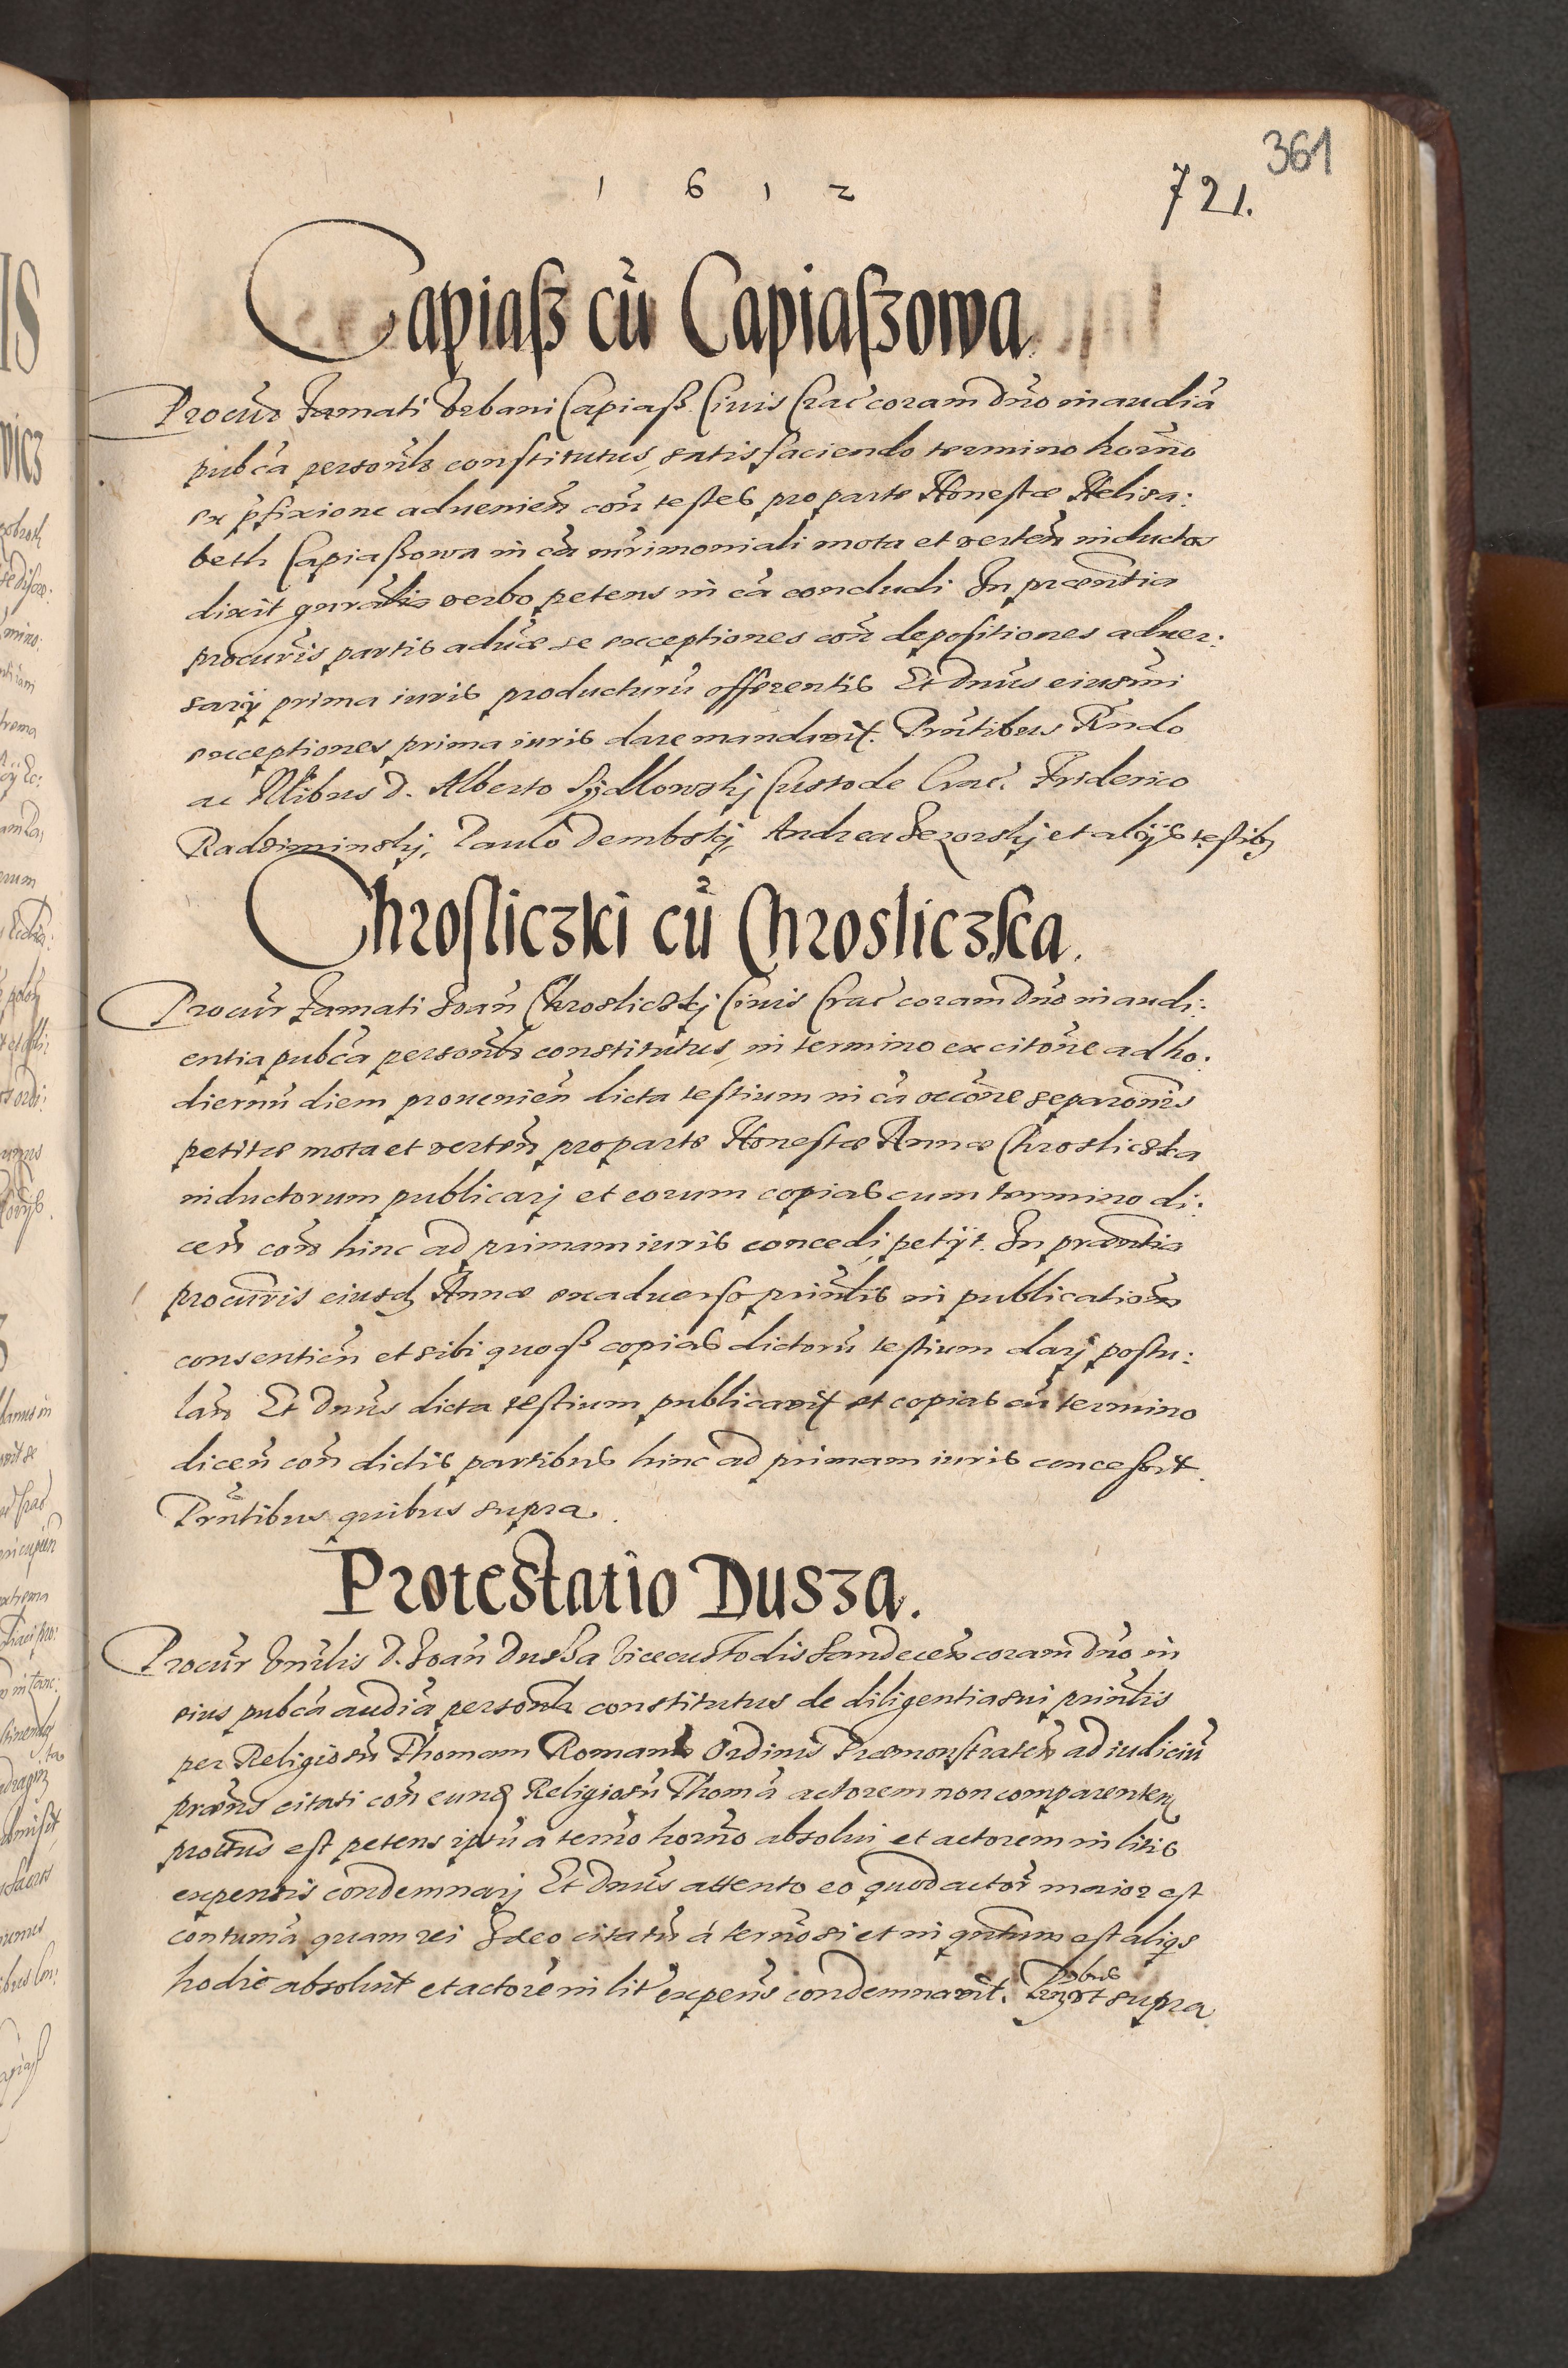 361
1 6 1 2
721.
Capiaß cũ Capiaßowa
Procur famati Vrbani Capiaß Ciuis Crac̃ coram Dño in audiã
pubca personlr constitutus, satisfaciendo termino horno
ex pfixione aduenien con testes pro parte Honestæ Heliza:
beth Capiaßowa in cã mrimoniali mota et verten inductos
dixit gnralia verbo petens in cã concludi In præntia
procuris partis aduæ se exceptiones con depositiones aduer:
sarij prima iuris producturũ offerentis Et Dnus eiusmi
exceptiones prima iuris dare mandauit. Pñtibus Rndo
ac Nlibus D. Alberto Sydlowskj Custode Crac. Friderico
Radziminskj, Paulo Dembskj, Andrea Jezorskj et alijs testib9
Chrosliczki cũ Chrosliczska.
Procur famati Joañ Chrosliczkj Ciuis Crac̃ coram Dño in audi:
entia pubca personlr constitutus, in termino ex citone ad ho:
diernũ diem prouenien dicta testium in cã occõne separonis
petitæ mota et verten pro parte Honestæ Annæ Chrosliczka
inductorum publicarj et eorum copias cum termino di:
cen con hinc ad primam iuris concedi petijt. In præntia
procuris eiusd Annæ ex aduerso prinlis in publicationem
consentien et sibi quoqß copias dictorũ testium darj postu:
lan Et Dnus dicta testium publicauit et copias cũ termino
dicen con dictis partibus hinc ad primam iuris concessit.
Pñtibus quibus supra.
Protestatio Dusza.
Procur Vnrlis D. Joañ Dusza Vicecustodis Sandecen coram Dño in
eius pubca audiã personlr constitutus de diligentia sui prinlis
per Religiosũ Thomam Ordinis Præmonstraten ad iudiciũ
præns citati con eund Religiosũ Thomã actorem non comparentem
protus est petens ipsũ a termo horno absolui et actorem in litis
expensis condemnarj Et Dnus attento eo quod actor maior est
contumã quam rei Ideo citatũ á termo si et in qntum est aliqs
hodie absoluit et actorẽ in lit expens condemnauit. supra